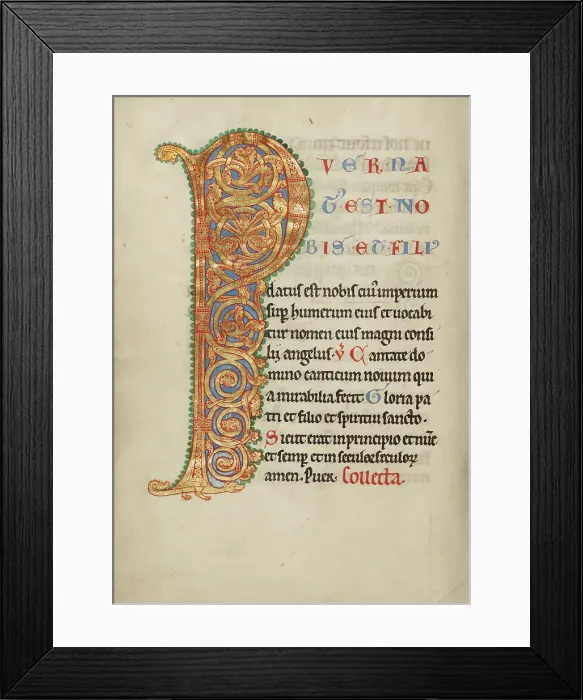 P VERNA
TEST NO
BIS · ET FILIꝰ
datus est nobis cuiꝰ imperium
suꝑ humerum eius et uocabi
tur nomen eius magni consi
lij angelus · ℣ Cantate do
mino canticum nouum qui
a mirabilia fecit Gloria pa
tri et filio et spiritui sancto ·
Sicut erat in principio et nũc
et semꝑ et in seculoꝝ
amen. Puer · Collecta.